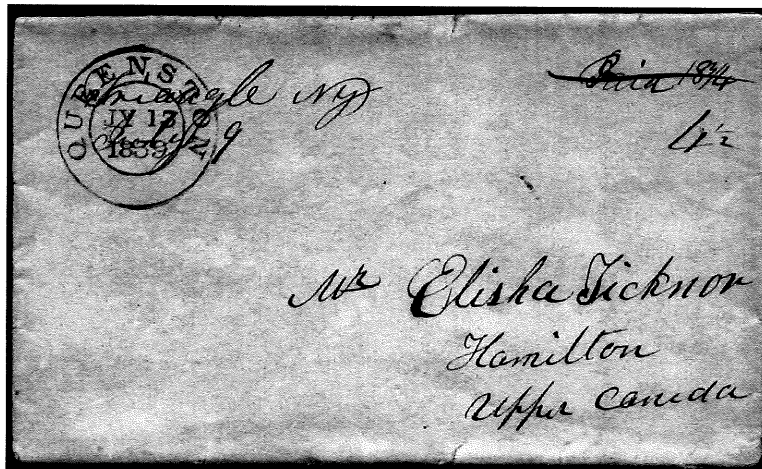 QUEENSTON
JY 13
1839
Triangle Ny
July 9
Paid 18¾
4½
Mr Elisha Ticknor
Hamilton
Upper Canada